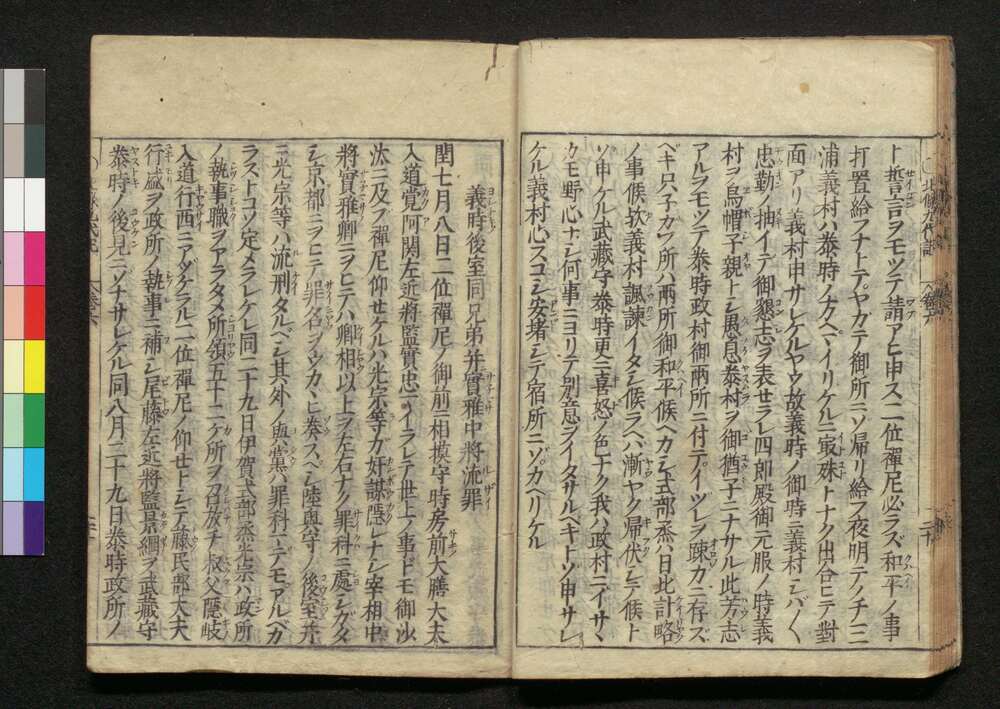 ト誓言ヲモツテ請アヒ申ス二位禪尼必ラズ和平ノ事
打置給フナトテヤガテ御所ニソ帰リ給フ夜明テノチ三
浦義村ハ泰時ノカヘイリケルニ最殊トナク出合ヒテ對
面アリ義村申サレケルヤウ故義時ノ御時ニ義村シバ〱
忠勤ノ抽イテ御懇志ヲ表セラレ四郎殿御元服ノ時義
村ヲ烏帽子親トシ愚息泰村ヲ御猶子ニナサル此芳志
アルヲモツテ泰時政村御両所ニ付テイツレヲ疎カニ存ズ
ベキ只子カフ所ハ両所御和平候ヘカシ式部丞ハ日比計略
ノ事候欤義村諷諫イタシ候ラヘハ漸ヤク帰伏シテ候ト
ソ申ケル武藏守泰時更ニ喜怒ノ色ナク我ハ政村ニイサヽ
カモ野心ナシ何事ニヨリテ別意ヲイタサルベキトソ申サレ
ケル義村心スコシ安堵シテ宿所ニソカヘリケル
義時後室同兄弟并實雅中將流罪
閏七月八日二位禪尼ノ御前ニ相摸守時房前大膳大夫
入道覚阿関左近將監實忠ヲイラレテ世上ノ事ドモ御沙
汰ニ及フ禪尼仰セケルハ光宗等ガ奸謀隠レナシ宰相中
將實雅卿ニヲヒテハ卿相以上ヲ左右ナク罪科ニ處シガタ
シ京都ニヲヒテ罪名ヲウカヽヒ奏スヘシ陸奥守ノ後室并
ニ光宗等ハ流刑タルベシ其外ノ與黨ハ罪科ニテモアルベカ
ラストコソ定メラレケレ同二十九日伊賀式部丞光宗ハ政所
ノ執事職ヲアラタメ所領五十二ケ所ヲ召放チ叔父隠岐
入道行西ニアヅケラル二位禪尼ノ仰セトシテ藤民部大夫
行盛ヲ政所ノ執事ニ補シ尾藤左近將監景綱ヲ武藏守
泰時ノ後見ニソナサレケル同八月二十九日泰時政所ノ